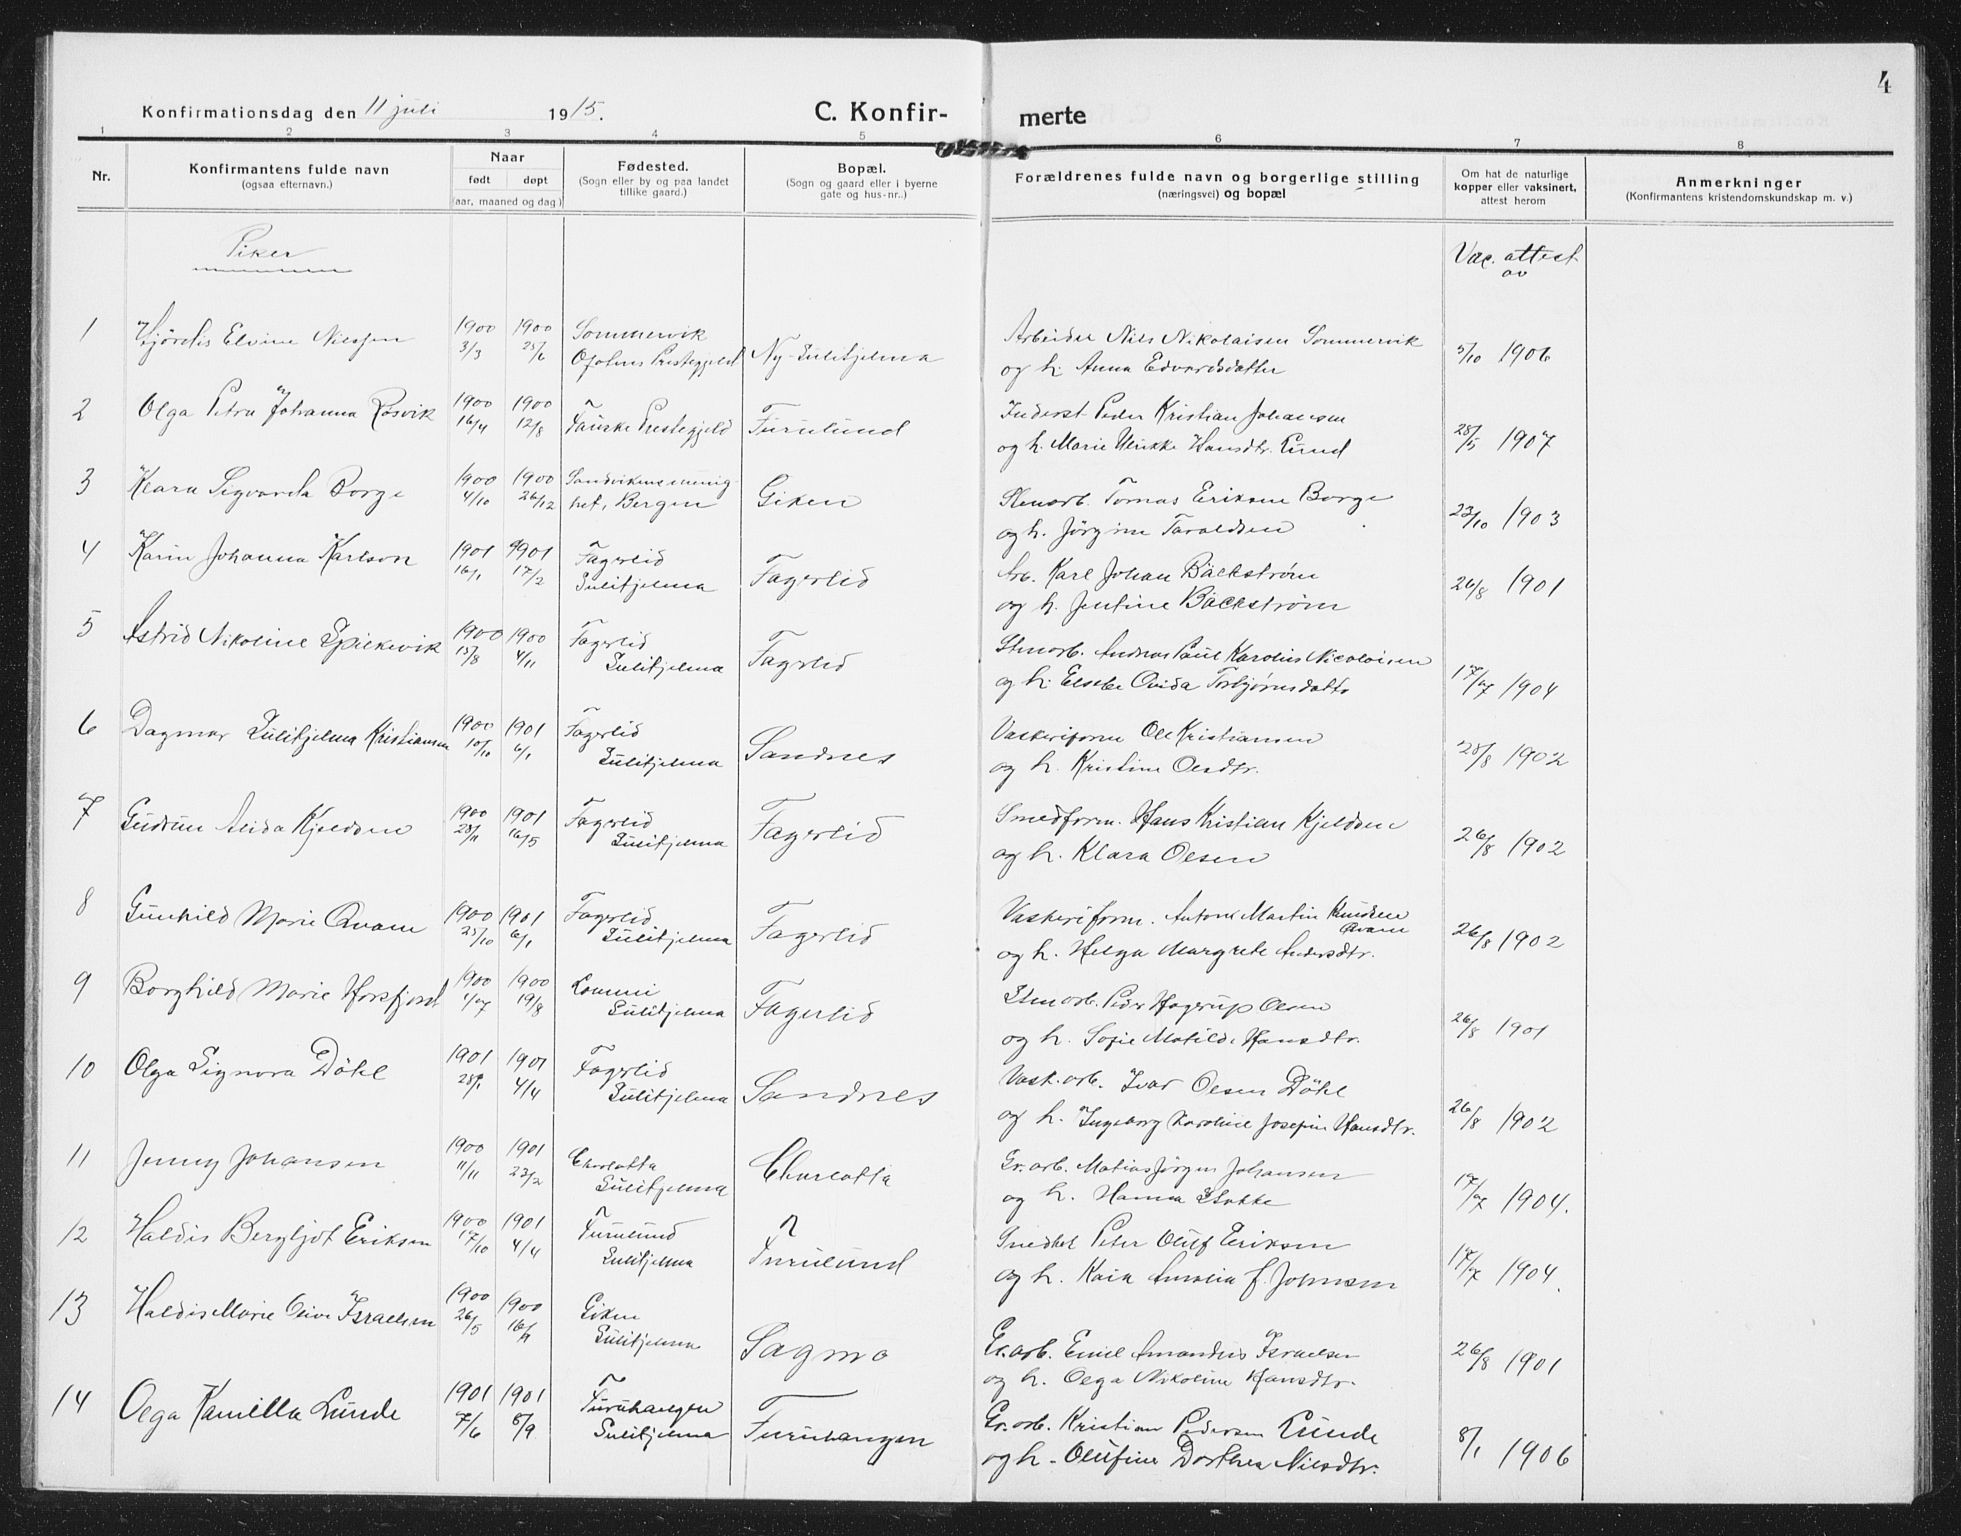 4
Konfirmationsdag den 11 juli 1915. C. Konfirmerte
1 2 3 4 5 6 7 8
Nr. Konfirmantens fulde navn (ogsaa efternavn.) Naar født døpt (aar, maaned og dag) Fødested. (Sogn eller by og paa landet tillike gaard.) Bopæl. (Sogn og gaard eller i byerne gate og hus-nr..) Forældrenes fulde navn og borgerlige stilling (næringsvei) og bopæl Om hat de naturlige kopper eller vaksinert, attest herom Anmerkninger (Konfirmantens kristendomskundskap m. v.)
Piker Vac. attest av
1 Hjördis Elvine Nilssen 1900 3/3 1900 25/6 Sommervik Ofotens Prestegjeld Ny-Sulitjelma Arbeider Nils Nikolaisen Sommervik
og h. Anna Edvardsdatter 3/10 1906
2 Olga Petra Johanna Rösvik 1900 16/4 1900 12/8 Fauske Prestegjeld Furulund Inderst Peder Kristian Johansen
og h. Marie Ulrikke Hansdtr. Lund 28/5 1907
3 Klara Sigvarda Borge 1900 4/10 1900 26/12 Sandvikens menighet, Bergen Giken Stenarb. Tomas Eriksen Borge
og h. Jörgine Taraldsen 23/10 1903
4 Karin Johanna Karlson 1901 16/1 1901 17/2 Fagerlid Sulitjelma Fagerlid Arb. Karl Johan Bäckström
og h. Jentine Bäckström 26/8 1901
5 Astrid Nikoline Spickevik 1900 15/8 1900 4/11 Fagerlid Sulitjelma Fagerlid Stenarb. Andreas Paul Karolius Nicolaisen
og h. Elsebe Ovida Torbjörnsdattr 17/7 1904
6 Dagmar Sulitjelma Kristiansen 1900 10/10 1901 6/1 Fagerlid Sulitjelma Sandnes Vaskeriform Ole Kristiansen
og h. Kristine Olsdtr. 28/8 1902
7 Gudrun Alida Kjeldsen 1900 28/11 1901 16/5 Fagerlid Sulitjelma Fagerlid Smedform. Hans Kristian Kjeldsen
og h. Klara Olsen 26/8 1902
8 Gunhild Marie Qvam 1900 25/10 1901 6/1 Fagerlid Sulitjelma Fagerlid Vaskeriform. Anton Martin Knudsen Qvam
og h. Helga Margrete Andersdtr. 26/8 1902
9 Borghild Marie Horsfjord 1900 1/7 1900 19/8 Lommi Sulitjelma Fagerlid Stenarb. Peder Hagerup Olsen
og h. Sofie Matilde Hansdtr. 26/8 1901
10 Olga Signora Döhl 1901 28/1 1901 4/4 Fagerlid Sulitjelma Sandnes Vask.arb. Ivar Olsen Döhl
og h. Ingeborg Karoline Josefin Hansdtr. 26/8 1902
11 Jenny Johansen 1900 11/11 1901 23/2 Charlotta Sulitjelma Charlotta Gr.arb. Matias Jörgen Johansen
og h. Hanna Stokke 17/7 1904.
12 Haldis Bergljot Eriksen 1900 17/10 1901 4/4 Furulund Sulitjelma Furulund Smedhol Peter Oluf Eriksen
og h. Kaia Amalia f. Johnsen 17/7 1904.
13 Haldis Marie Olive Israelsen 1900 26/5 1900 16/9 Giken Sulitjelma Sagmo Gr.arb. Emil Amandus Israelsen
og h. Olga Nikoline Hansdtr. 26/8 1901
14 Olga Kamilla Lunde 1901 7/6 1901 8/9 Furuhaugen Sulitjelma Furuhaugen Gr.arb. Kristian Pedersen Lunde
og h. Olufine Dorthea Nilsdtr. 8/1 1906